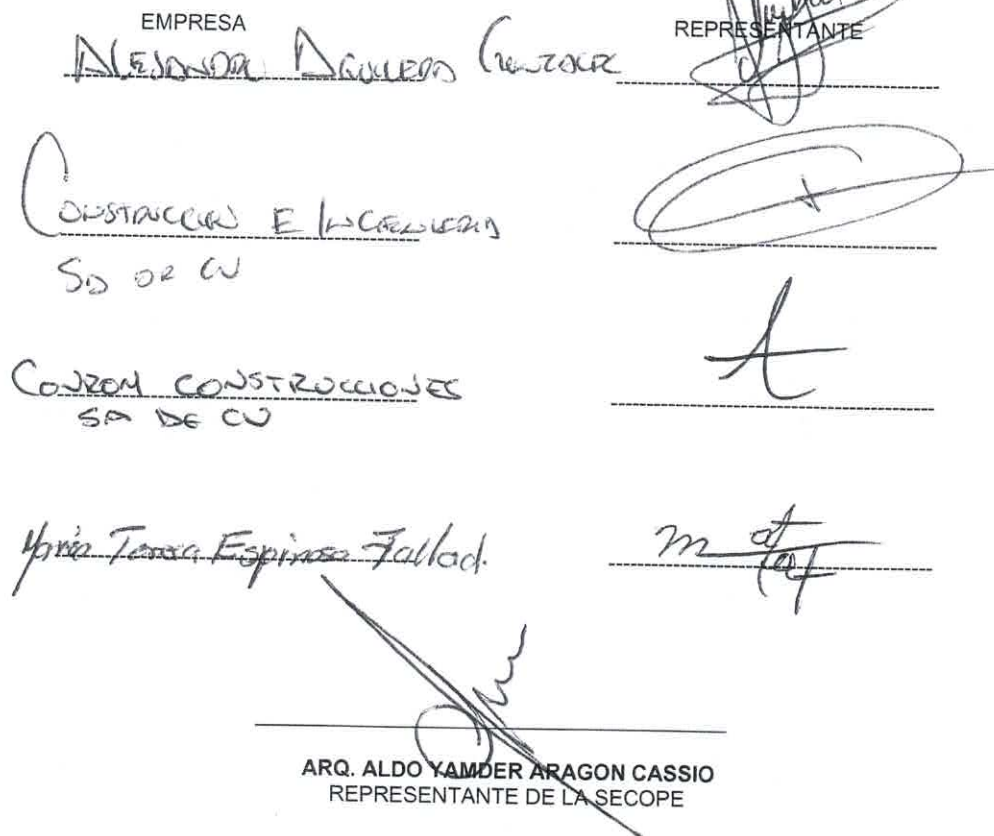 EMPRESA
REPRESENTANTE
ALEJANDRA AGUILERA GONZALEZ
CONSTRUCCION E INGENIERIA
SA DE CV
CONZOM CONSTRUCCIONES
SA DE CV
María Teresa Espinosa Fallad.
ARQ. ALDO YAMDER ARAGON CASSIO
REPRESENTANTE DE LA SECOPE